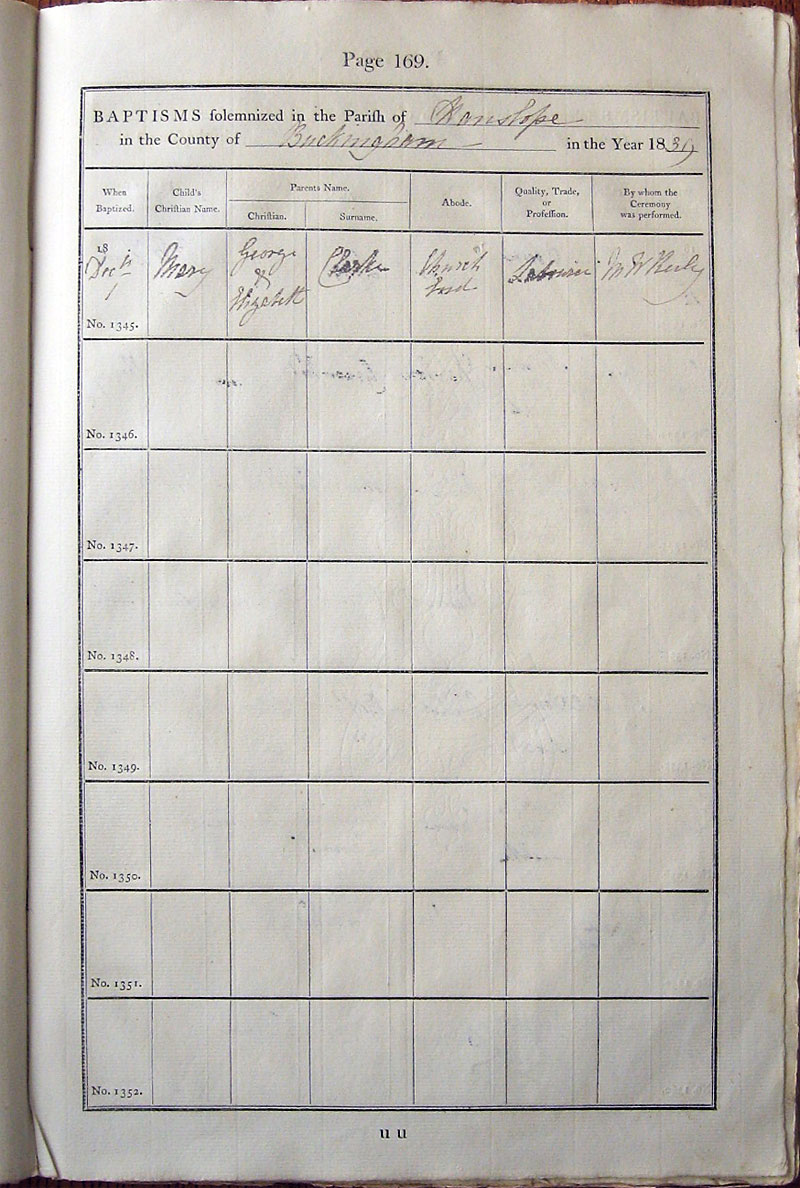 Page 169.
BAPTISMS solemnized in the Parish of Hanslope
in the County of Buckingham in the Year 1839
When Baptized.
Child's Christian Name.
Parents Name.
Christian.
Surname.
Abode.
Quality, Trade, or Profession.
By whom the Ceremony was performed.
18
Decr
1
No. 1345.
Mary
George
&
Elizabeth
Clarke
Church
End
Labourer
M W
No. 1346.
No. 1347.
No. 1348.
No. 1349.
No. 1350.
No. 1351.
No. 1352.
U U